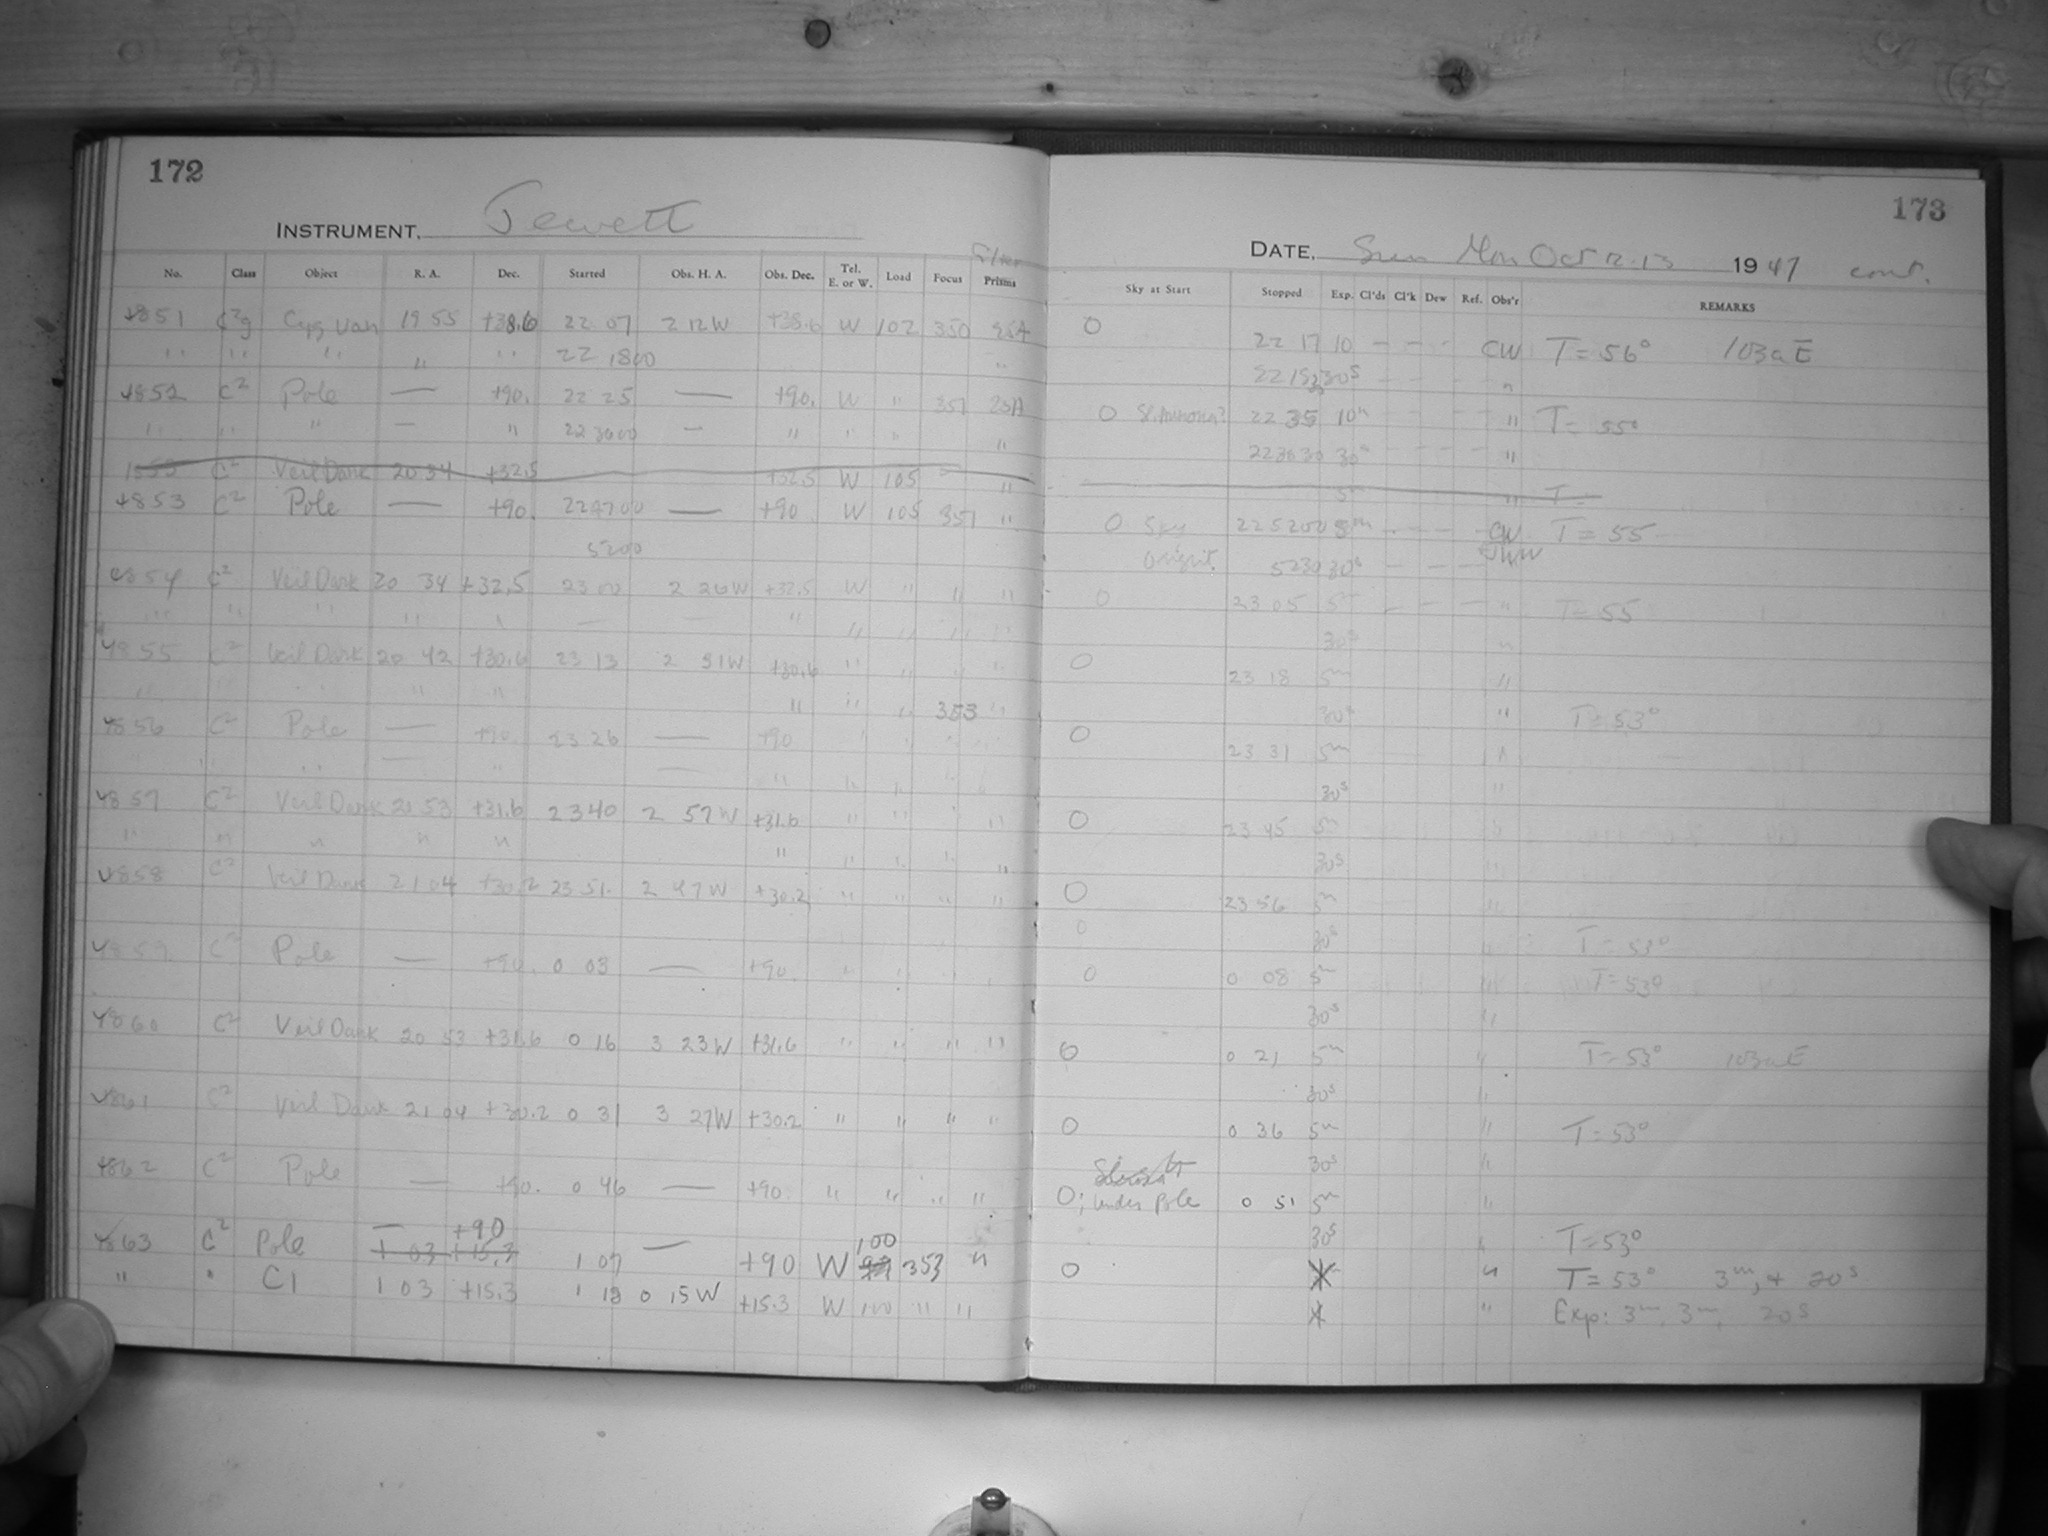 172
INSTRUMENT. Jewett
Filter
No. Class Object R. A. Dec. Started Obs. H. A. Obs. Dec. Tel. E. or W. Load Focus Prisms
4851 C²g Cyg Van 19 55 +38.6 22 07 2 12W +38.6 W 102 350 25A
" " " " " 22 1800 "
4852 C² Pole — +90. 22 25 — +90. W " 351 25A
" " " — " 22 3600 — " " " "
C² Veil Dark 20 34 +32.5 +32.5 W 105 "
4853 C² Pole — +90. 224700 — +90 W 105 351 "
5200
4854 C² Veil Dark 20 34 +32.5 23 00 2 26W +32.5 W " " "
" " " " " — — " " " " "
4855 C² Veil Dark 20 42 +30.6 23 13 2 31W +30.6 " " " "
" " " " " " " 353 "
4856 C² Pole — +90 23 26 — +90 " " " "
" " " — " — " " " "
4857 C² Veil Dark 20 53 +31.6 23 40 2 57W +31.6 " " " "
" " " " " " " " " "
4858 C² Veil Dark 21 04 +30.2 23 51. 2 47W +30.2 " " " "
4859 C² Pole — +90. 0 03 — +90. " " " "
4860 C² Veil Dark 20 53 +31.6 0 16 3 23W +31.6 " " " "
4861 C² Veil Dark 21 04 +30.2 0 31 3 27W +30.2 " " " "
4862 C² Pole — +90. 0 46 — +90 " " " "
— +90 100
4863 C² Pole 1 03 +15.3 1 07 — +90 W 353 "
" " C1 1 03 +15.3 1 18 0 15W +15.3 W 100 " "
173
DATE. Sun Mon Oct 12-13 1947 cont.
Sky at Start Stopped Exp. Cl'ds Cl'k Dew Ref. Obs'r REMARKS
0 22 17 10 — — - CW T = 56° 103aE
30s - - - "
0 Sl. Aurora? 22 35 10m - - - " T = 55°
223630 30s - - - "
5m " T =
0 Sky 225200 5m - - - - CW T = 55
bright. 5230 30s - - -
0 23 05 5m - - - " T = 55
30s "
0 23 18 5m "
30s " T = 53°
0 23 31 5m "
30s "
0 23 45 5m "
30s "
0 23 56 5m "
0 30s " T = 53°
0 0 08 5m " T = 53°
30s "
0 0 21 5m " T = 53° 103aE
30s "
0 0 36 5m " T = 53°
30s "
0; under Pole 0 51 5m "
30s " T = 53°
0 " T = 53° 3m, + 20s
" Exp: 3m, 3m, 20s